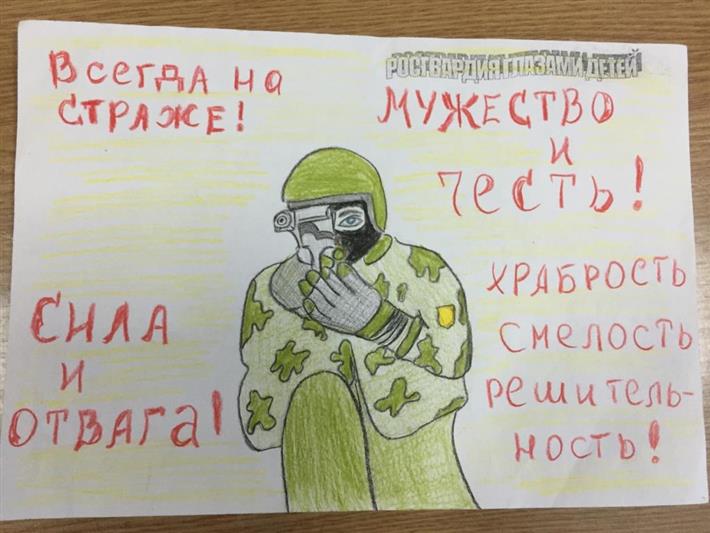 Всегда на
СТРАЖЕ!
РОСГВАРДИЯ ГЛАЗАМИ ДЕТЕЙ
МУЖЕСТВО
и
ЧЕСТЬ!
СИЛА
И
ОТВАГА!
ХРАБРОСТЬ
СМЕЛОСТЬ
РЕШИТЕЛЬ-
НОСТЬ!